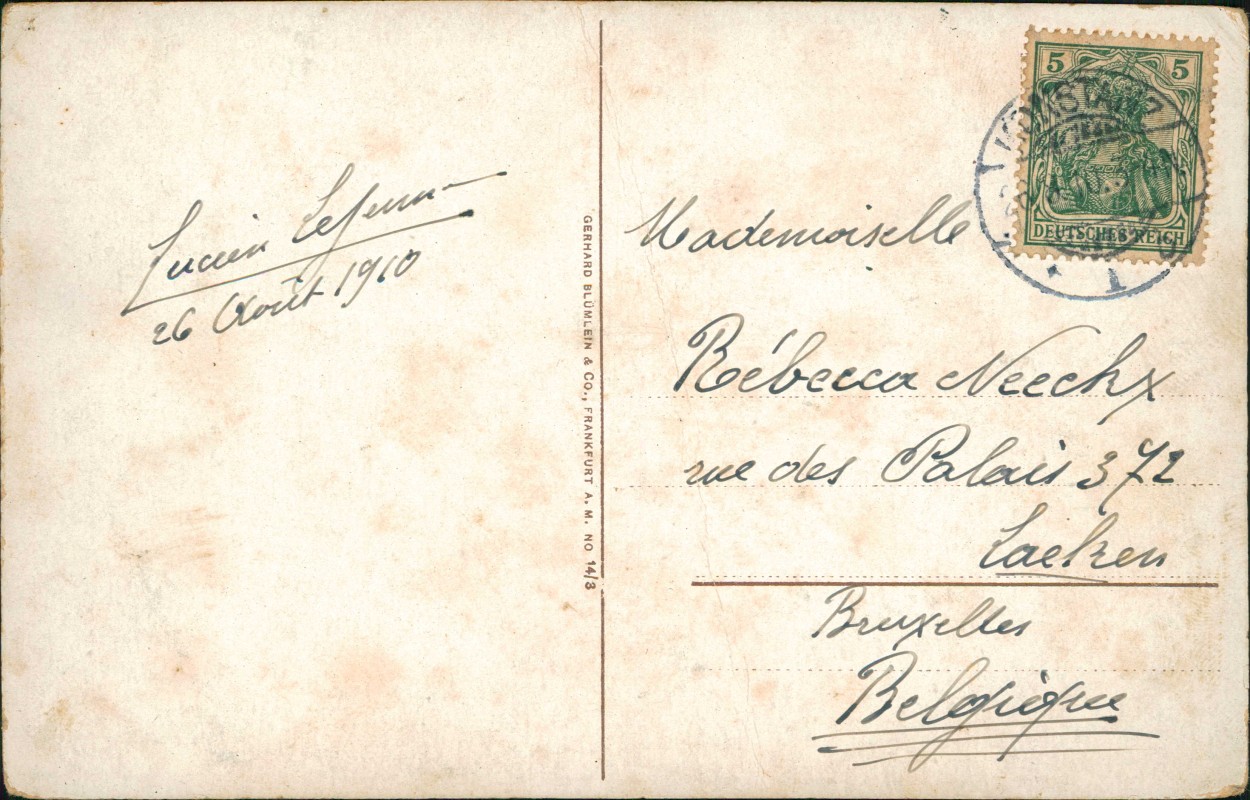 Lucien Lejeune
26 Août 1910
GERHARD BLÜMLEIN & CO., FRANKFURT A. M. NO 14/3
5 5
DEUTSCHES REICH
KONSTANZ
1
Mademoiselle
Rébecca Neechx
rue des Palais 372
Laeken
Bruxelles
Belgique